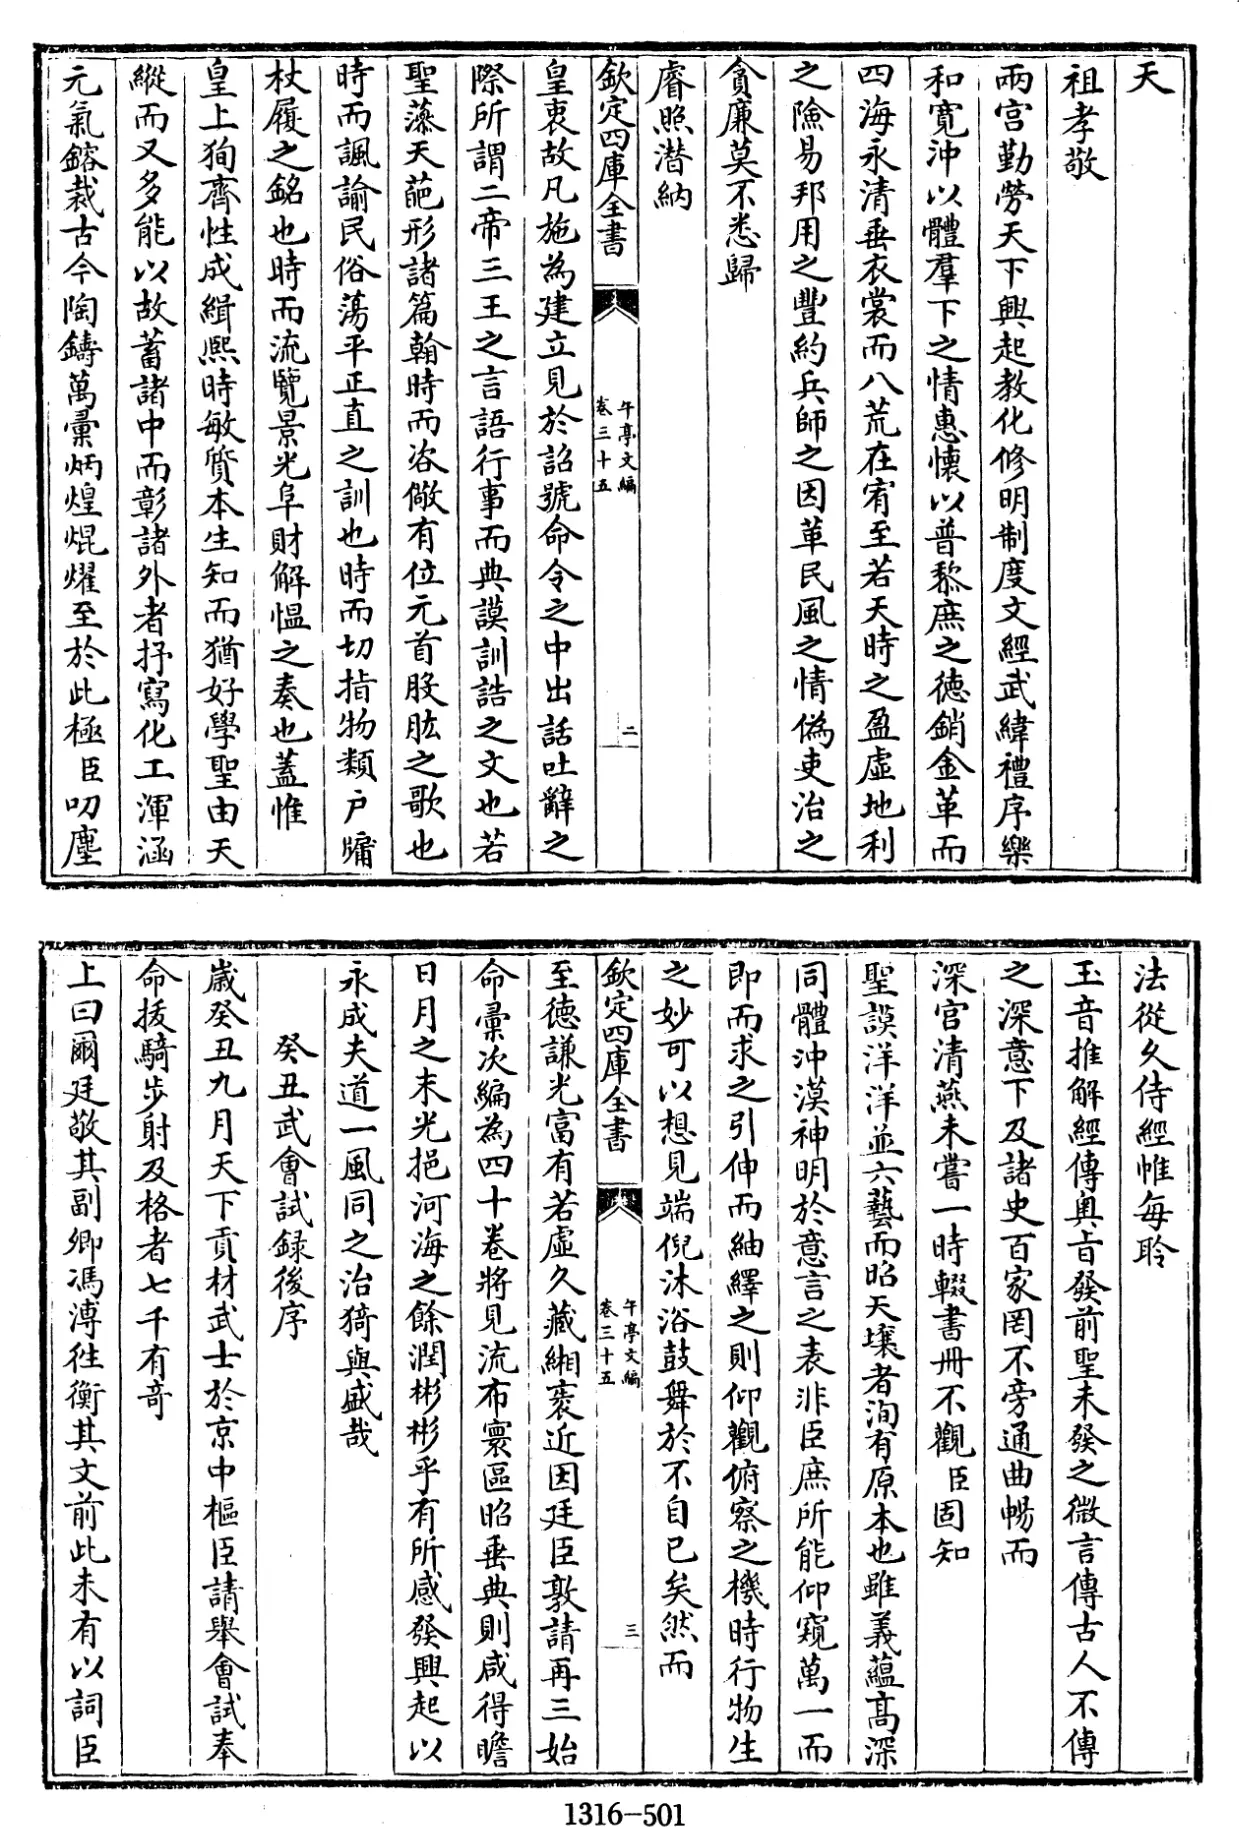 天
祖孝敬
兩宫勤勞天下興起教化修明制度文經武緯禮序樂
和寛沖以體羣下之情惠懷以普黎庶之德銷金革而
四海永清垂衣裳而八荒在宥至若天時之盈虚地利
之險易邦用之豐約兵師之因革民風之情偽吏治之
貪廉莫不悉歸
睿照潜納
欽定四庫全書
午亭文編
卷三十五
二
皇衷故凡施為建立見於詔號命令之中出話吐辭之
際所謂二帝三王之言語行事而典謨訓誥之文也若
聖藻天葩形諸篇翰時而咨儆有位元首股肱之歌也
時而諷諭民俗蕩平正直之訓也時而切指物類户牖
杖履之銘也時而流覽景光阜財解愠之奏也蓋惟
皇上狥齊性成緝熙時敏質本生知而猶好學聖由天
縱而又多能以故蓄諸中而彰諸外者抒寫化工渾涵
元氣鎔裁古今陶鑄萬彙炳煌焜燿至於此極臣叨塵
法從久侍經帷每聆
玉音推解經傳奥旨發前聖未發之微言傳古人不傳
之深意下及諸史百家罔不旁通曲暢而
深宫清燕未嘗一時輟書册不觀臣固知
聖謨洋洋並六藝而昭天壤者洵有原本也雖義藴髙深
同體沖漠神明於意言之表非臣庶所能仰窺萬一而
即而求之引伸而紬繹之則仰觀俯察之機時行物生
之妙可以想見端倪沐浴鼓舞於不自已矣然而
欽定四庫全書
午亭文編
卷三十五
三
至德謙光富有若虚久藏緗袠近因廷臣敦請再三始
命彙次編為四十卷將見流布寰區昭垂典則咸得瞻
日月之末光挹河海之餘潤彬彬乎有所感發興起以
永成夫道一風同之治猗與盛哉
癸丑武會試録後序
歲癸丑九月天下貢材武士於京中樞臣請舉會試奉
命拔騎步射及格者七千有奇
上曰爾廷敬其副卿馮溥徃衡其文前此未有以詞臣
1316-501